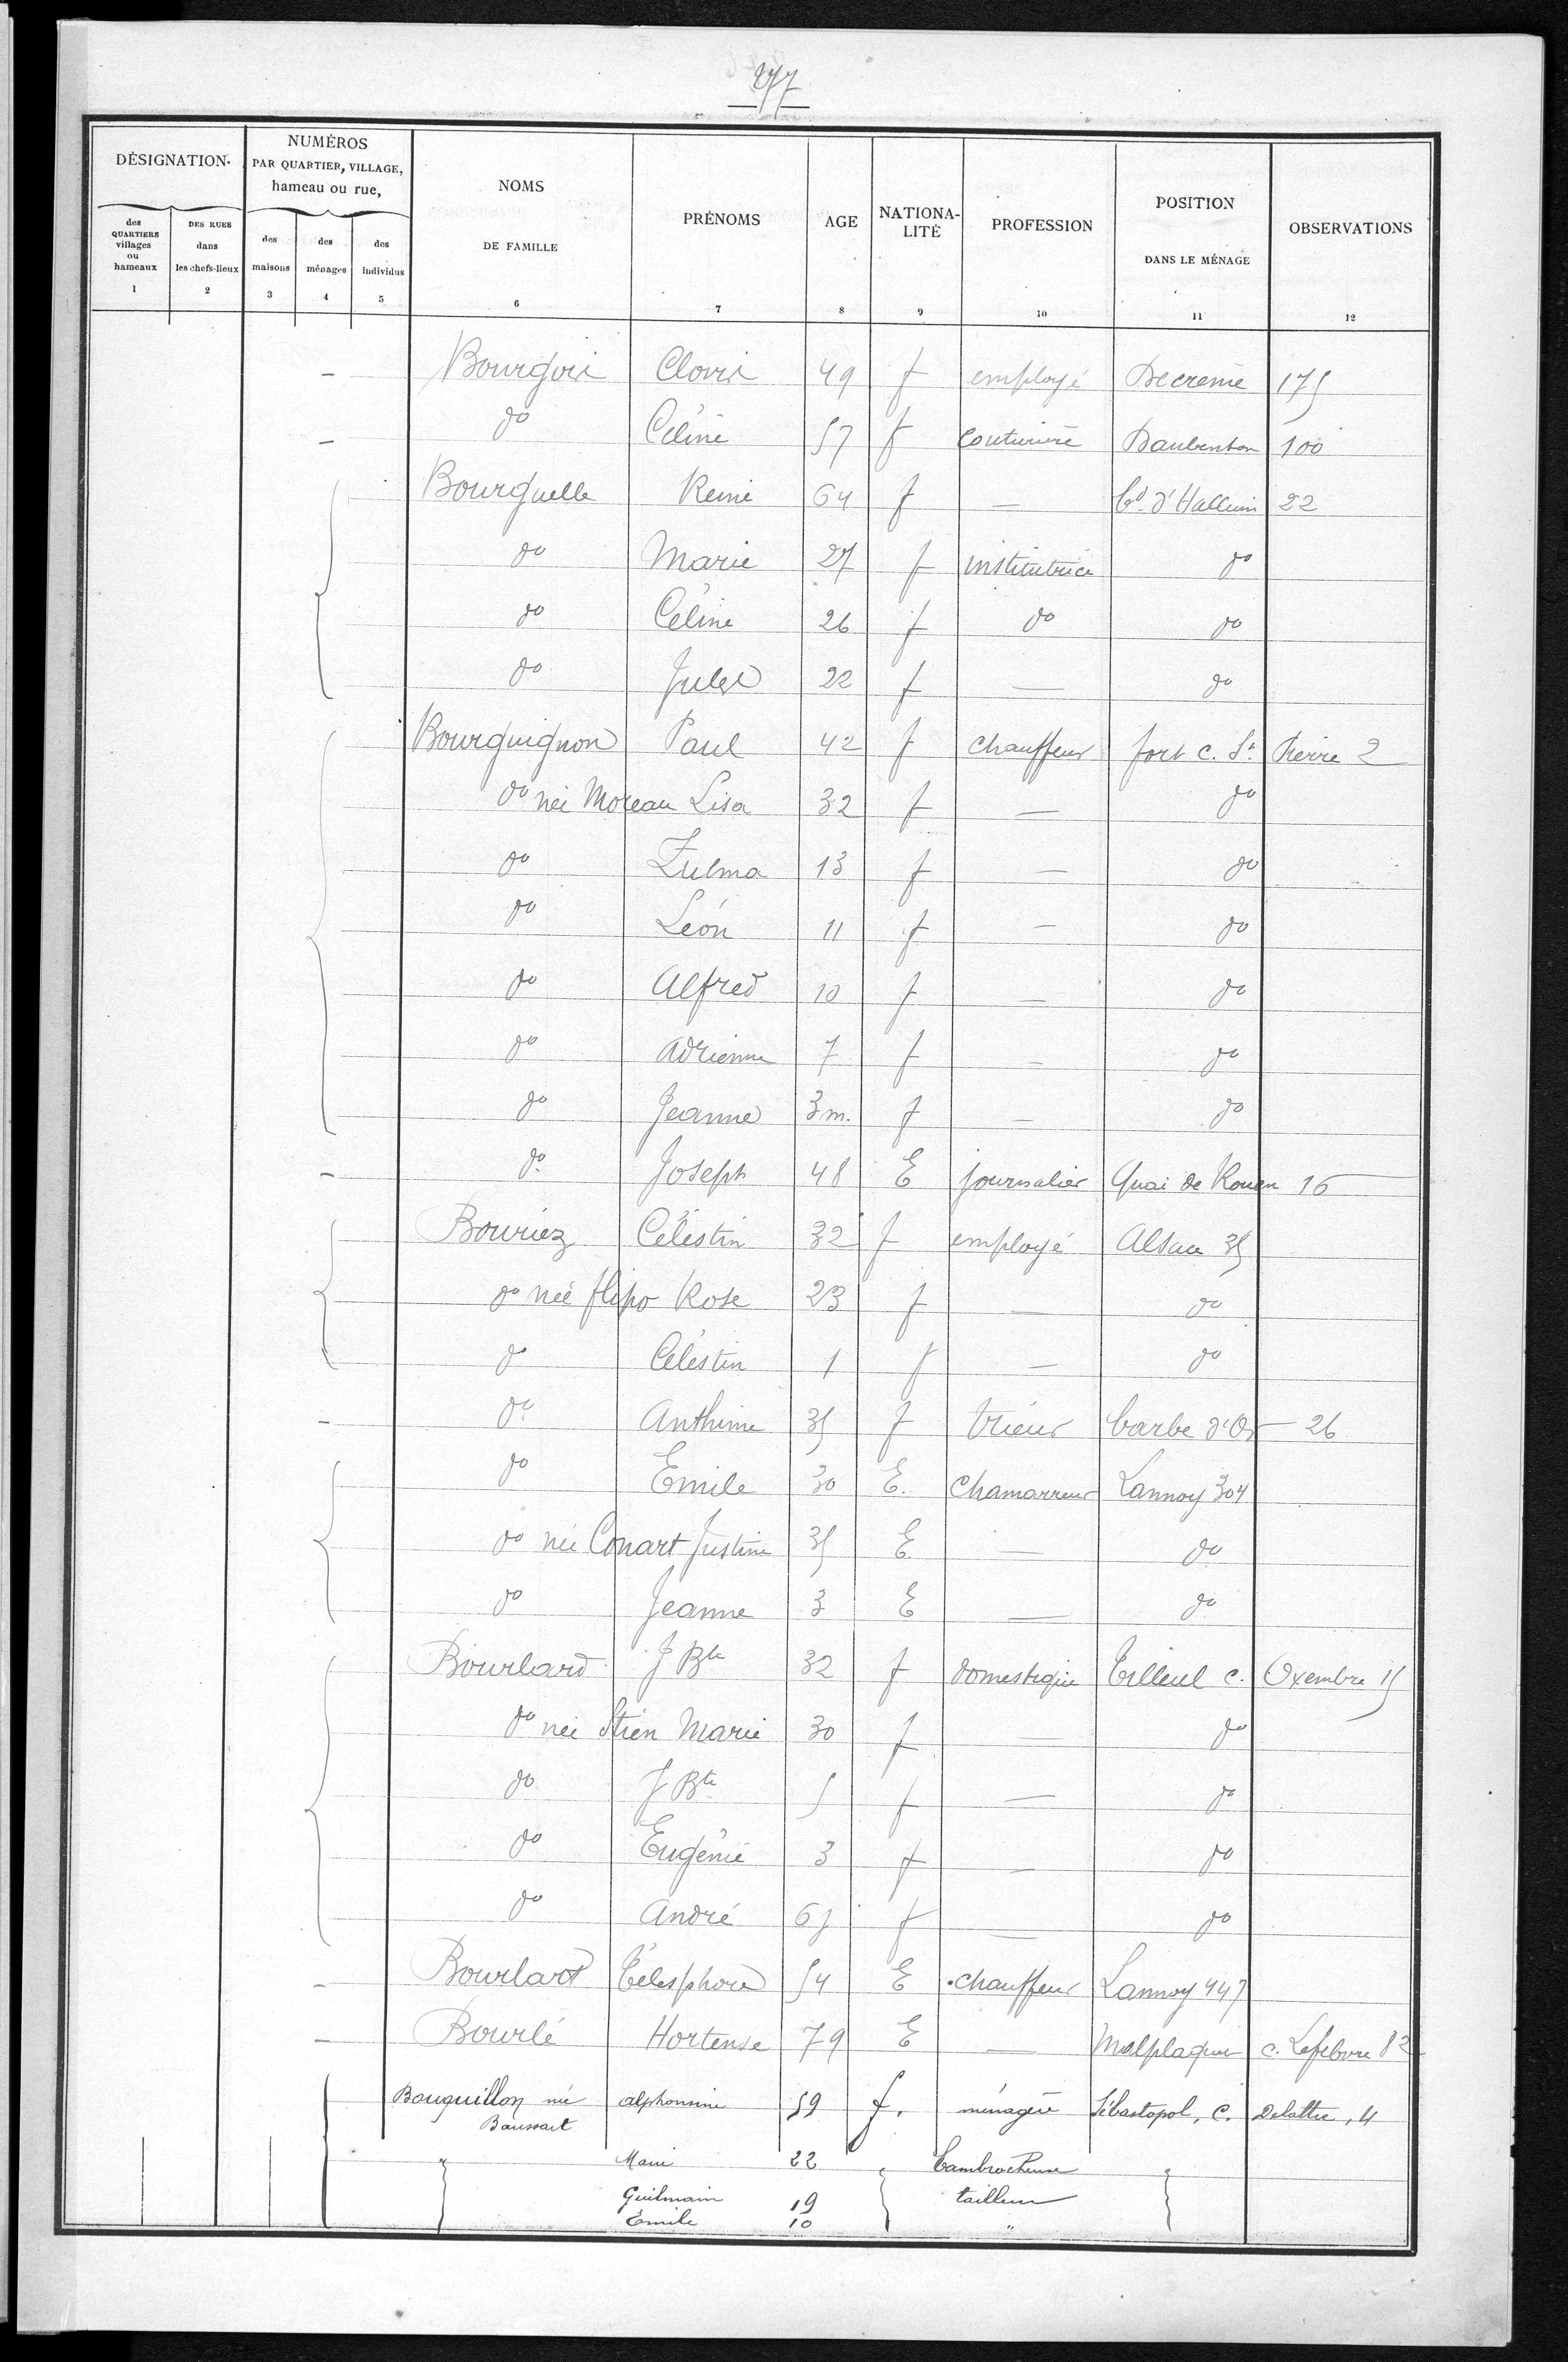 277
DÉSIGNATION
NUMÉROS
PAR QUARTIER, VILLAGE,
hameau ou rue,
NOMS
DE FAMILLE
PRÉNOMS
AGE
NATIONA-
LITÉ
PROFESSION
POSITION
DANS LE MÉNAGE
OBSERVATIONS
des
QUARTIERS
villages
ou
hameaux
DES RUES
dans
les chefs-lieux
des
maisons
des
ménages
des
individus
1 2 3 4 5 6 7 8 9 10 11 12
Bourgois Clovis 49 f employé Decrême 175
do Céline 57 f couturière Daubenton 100
Bourguelle Remi 64 f — Bd d'Halluin 22
do Marie 27 f institutrice do
do Céline 26 f do do
do Jules 22 f — do
Bourguignon Paul 42 f chauffeur fort c. St. Pierre 2
do née Moreau Lisa 32 f — do
do Zulma 13 f — do
do Léon 11 f — do
do Alfred 10 f — do
do Adrienne 7 f — do
do Jeanne 3 m. f — do
do Joseph 48 E journalier Quai de Rouen 16
Bouriez Célestin 32 f employé Alsace 35
do née flipo Rose 23 f — do
do Célestin 1 f — do
do Anthime 35 f trieur barbe d'Or 26
do Emile 30 E. Chamarreur Lannoy 304
do née Conart Justine 35 E — do
do Jeanne 3 E — do
Bourlard J Bte 32 f domestique Tilleul c. Oxembre 15
do née Stien Marie 30 f — do
do J Bte 5 f — do
do Eugénie 3 f — do
do André 6 j f — do
Bourlart Télesphore 54 E chauffeur Lannoy 447
Bourlé Hortense 79 E — Malplaquet c. Lefebvre 82
Bouquillon née alphonsine 59 f. ménagère Sébastopol, c. Delattre, 4
Baussart
Marie 22 Cambrocheuse
Guilmain 19 tailleur
Émile 10 "